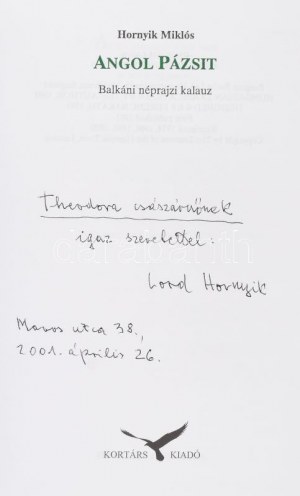 Hornyik Miklós
ANGOL PÁZSIT
Balkáni néprajzi kalauz
Theodora császárnőnek
igaz szeretettel:
Lord Hornyik
Maros utca 38.,
2001. április 26.
KORTÁRS KIADÓ